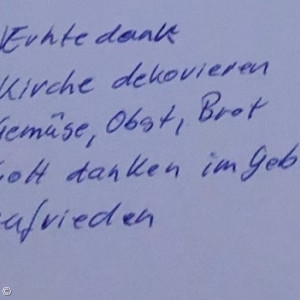 Erntedank
Kirche dekorieren
Gemüse, Obst, Brot
Gott danken im Geb
zufrieden
©